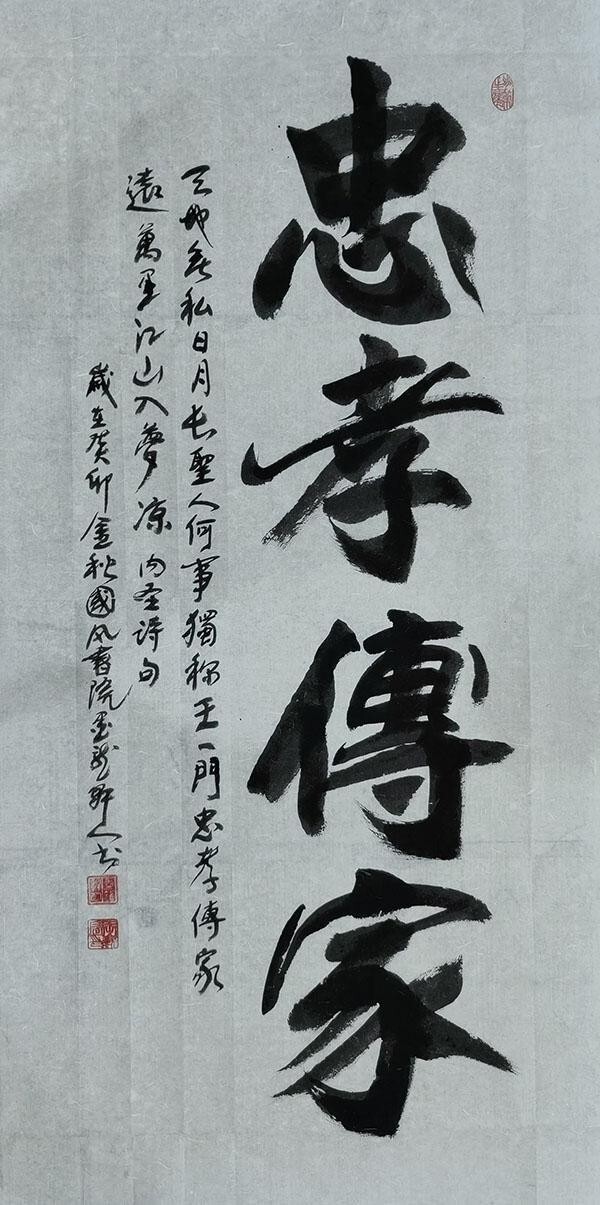 忠孝傳家
天地無私日月長聖人何事獨稱王一門忠孝傳家
遠萬里江山入夢凉 內圣詩句
歲在癸卯金秋國风書院墨龙野人书